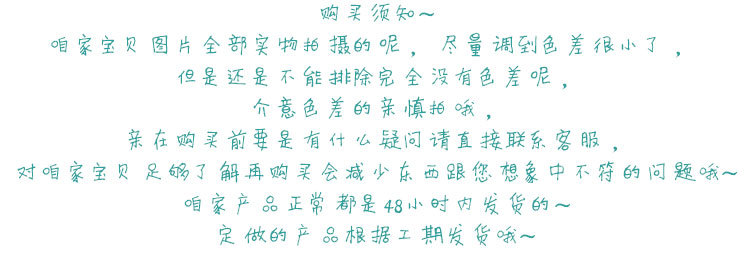 购买须知~
咱家宝贝图片全部实物拍摄的呢，尽量调到色差很小了，
但是还是不能排除完全没有色差呢，
介意色差的亲慎拍哦，
亲在购买前要是有什么疑问请直接联系客服，
对咱家宝贝足够了解再购买会减少东西跟您想象中不符的问题哦~
咱家产品正常都是48小时内发货的~
定做的产品根据工期发货哦~